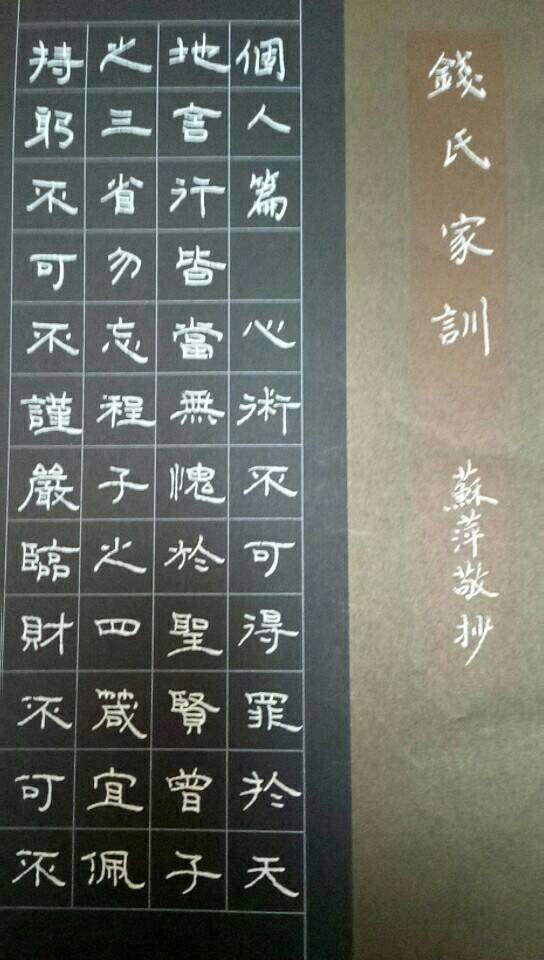 錢氏家訓
蘇萍敬抄
個人篇 心術不可得罪於天
地言行皆當無愧於聖賢曾子
之三省勿忘程子之四箴宜佩
持躬不可不謹嚴臨財不可不